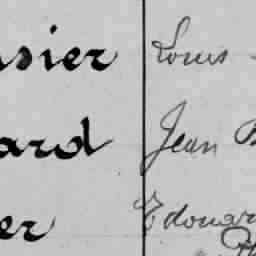 sier Louis
ard Jean B
er Edouar